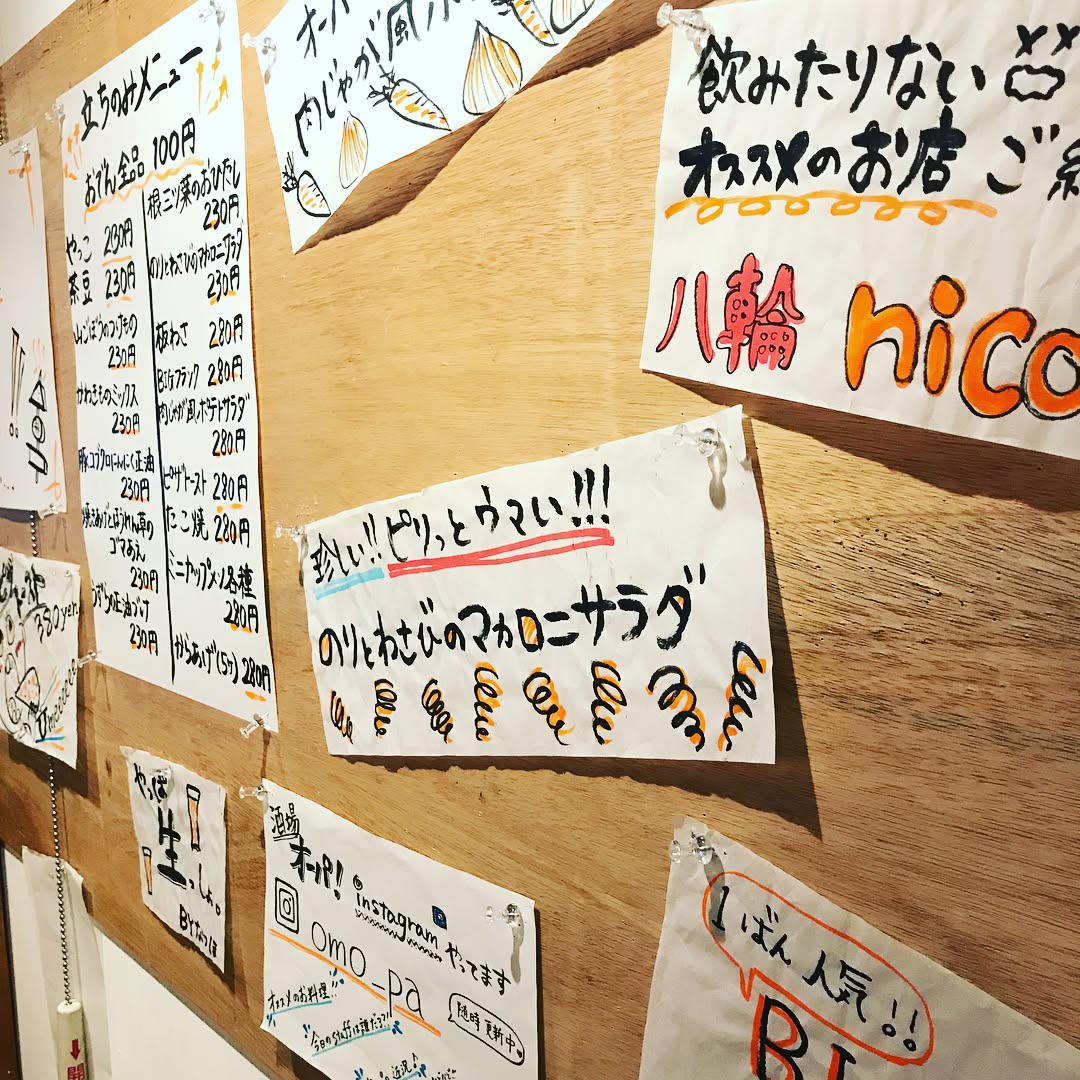 立ちのみメニュー
おでん全品 100円
やっこ 230円
茶豆 230円
山ごぼうのつけもの
230円
かわきものミックス
230円
豚コブクロにんにく正油
230円
焼きあげとほうれん草の
ゴマあえ
230円
うずらの正油づけ
230円
根三ツ葉のおひたし
230円
のりとわさびのマカロニサラダ
230円
板わさ 280円
BIGフランク 280円
肉じゃが風ポテトサラダ
280円
ピザトースト 280円
たこ焼 280円
ミニカップメン各種
280円
からあげ(5ヶ) 280円
オーパ
肉じゃが風ポ
飲みたりない
オススメのお店 ご紹
八輪 nico
珍しい!! ピリっとウマい!!!
のりとわさびのマカロニサラダ
380yen
Umeeeeee
やっぱ
生っしょ。
BYなつほ
酒場
オーパ!
instagram やってます
omo_pa
オススメのお料理!!
今日のstaffは誰だろ?!
の近況♪
随時更新中
1ばん人気!!
BI
開